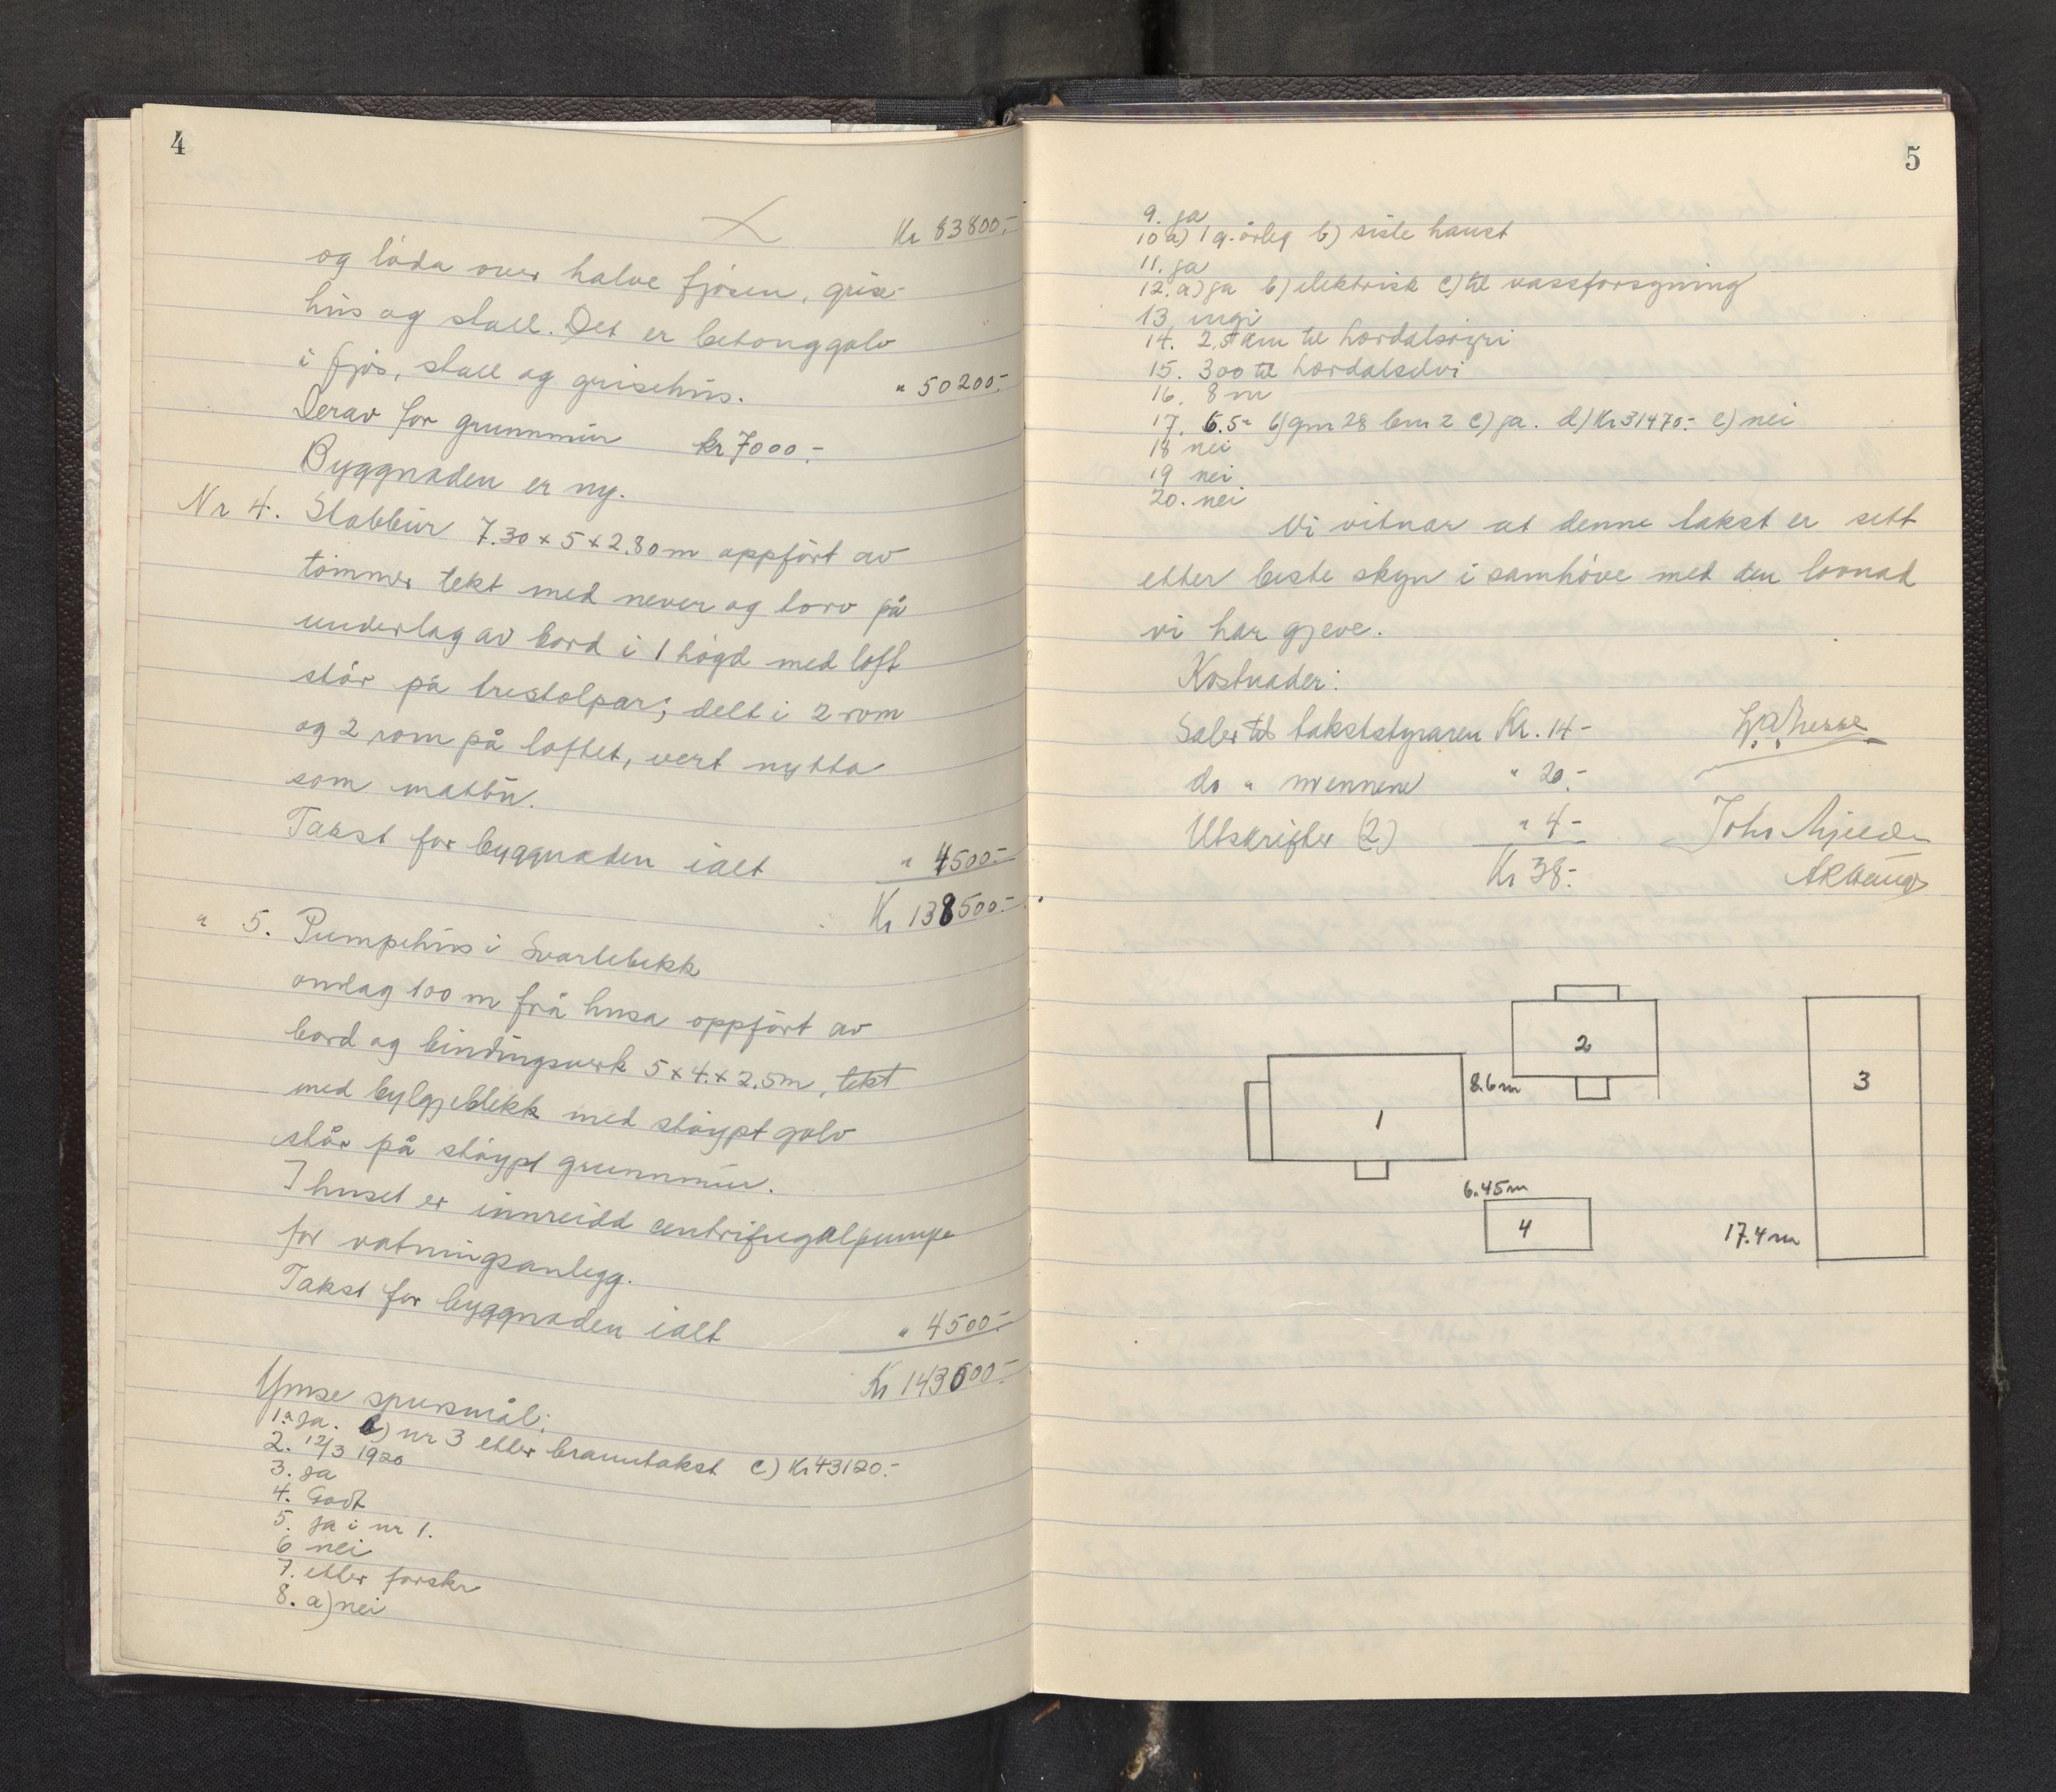 4
Kr 83800.-
og löda over halve fjösen, grise-
hus og stall. Det er betonggolv
i fjös, stall og grisehus. " 50200.-
Derav for grunnmur kr 7000.-
Byggnaden er ny.
Nr 4. Stabbur 7.30 x 5 x 2.80 m oppfört av
tömmer tekt med never og torv på
underlag av bord i 1 högd med loft
står på trestolpar; delt i 2 rom
og 2 rom på loftet, vert nytta
som matbu.
Takst for byggnaden ialt " 4500.-
Kr 138500.-
" 5. Pumpehus i Svartebekk
omlag 100 m frå husa oppfört av
bord og bindingsverk 5 x 4. x 2.5m, tekt
med bylgjeblekk med stöypt golv
står på stöypt grunnmur.
I huset er innreidd centrifugalpumpe
for vatningsanlegg.
Takst for byggnaden ialt " 4500.-
Kr 143000.-
Ymse spursmål:
1.a ja. b) nr 3 etter branntakst c) Kr 43120.-
2. 12/3 1920
3. ja
4. Godt
5. ja i nr 1.
6 nei
7. etter forskr
8. a) nei
5
9. ja
10 a) 1 g. årleg b) siste haust
11. ja
12. a) ja b) elektrisk c) til vassforsyning
13 ingi
14. 2,5 km til Lærdalsøyri
15. 300 til Lærdalselvi
16. 8 m
17. 6.5 b) gnr 28 bnr 2 c) ja. d) Kr 31470.- e) nei
18 nei
19 nei
20. nei
Vi vitnar at denne takst er sett
etter beste skyn i samhöve med den lovnad
vi har gjeve.
Kostnader:
Saler til takststyraren Kr. 14-
do " mennene " 20.-
Utskrifter (2) " 4-
John
Kr 38.-
1
2
3
4
8.6 m
6.45 m
17.4 m